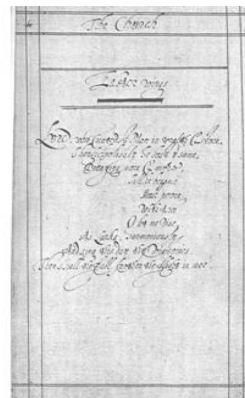 The Church
Easter wings
Lord, who Man in wealth store,
he lost same,
Decaying more
Till he became
Most poore,
With thee
O let me rise
As Larks, harmoniously
And sing this day
Then shall the fall further the flight in mee.